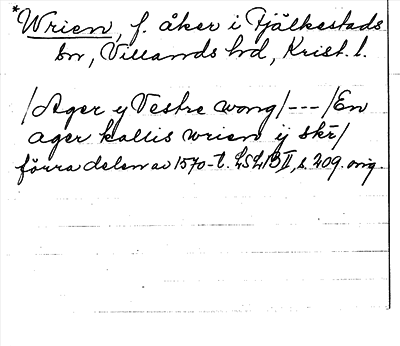 *Wrien, f. åker i Fjälkestads
sn, Villands hd, Krist. l.
/Ager y Vestre wong/---/En
ager kallis wrien ij skr/
förra delen av 1570-t. LSLIB II, s. 209. orig.